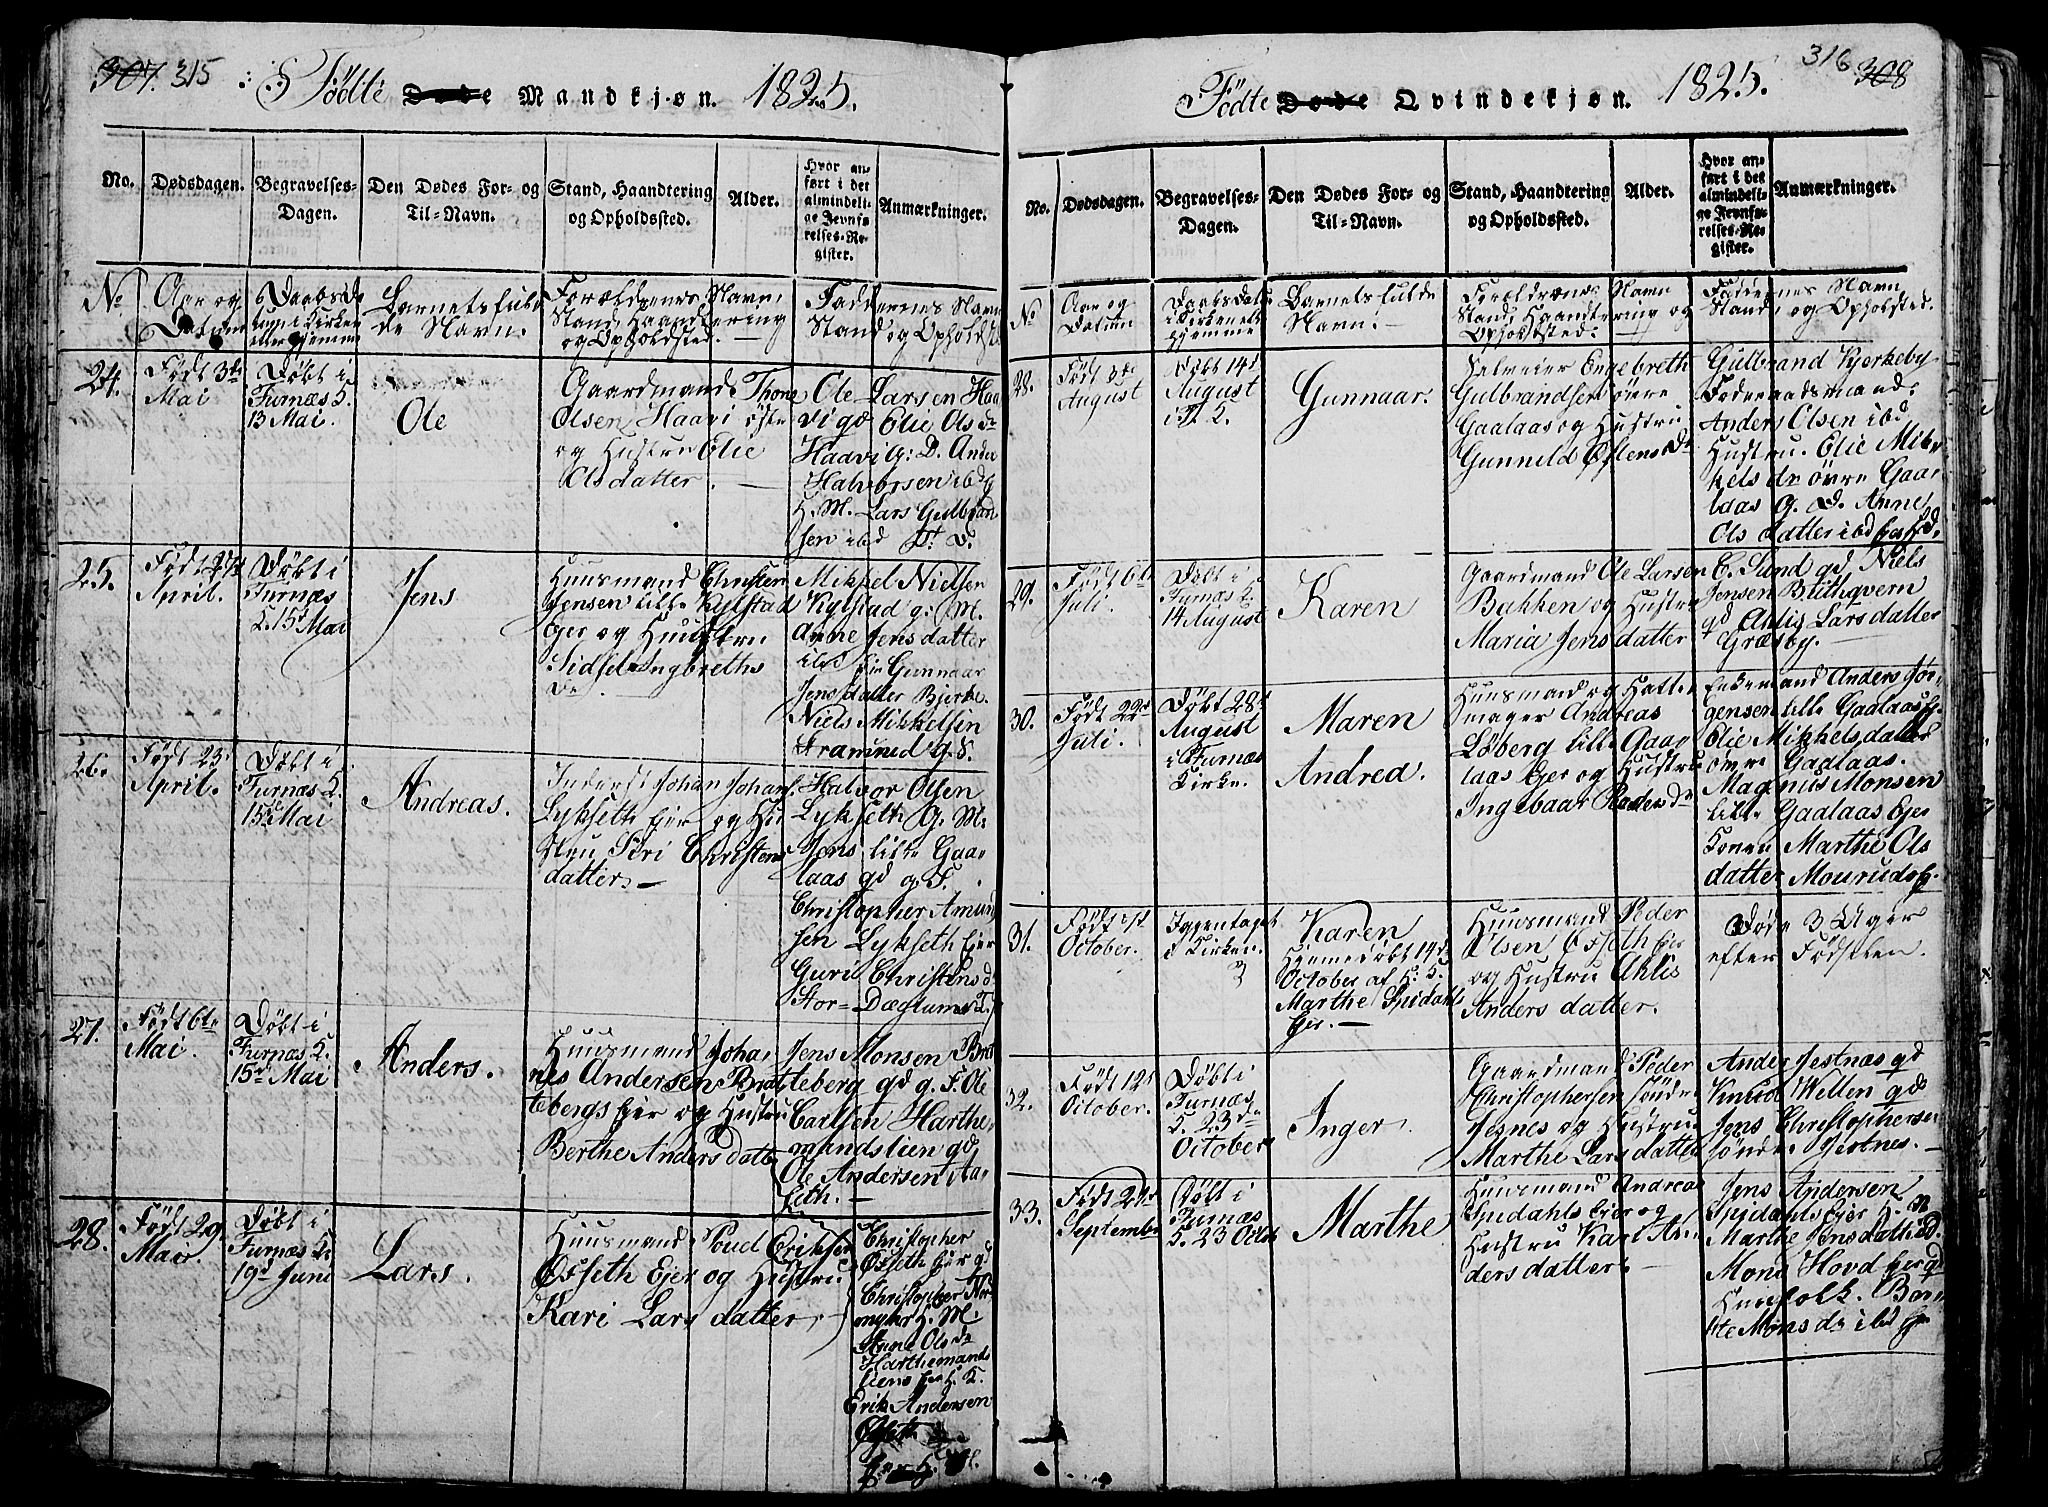 307. 315
Fødte Døde Mandkjøn. 1825.
No.
Dødsdagen.
Begravelses-
Dagen.
Den Dødes For- og
Til-Navn.
Stand, Haandtering
og Opholdssted.
Alder.
Hvor an-
ført i det
almindeli-
ge Jevnfø-
relses-Re-
gister.
Anmærkninger.
No
Aar og
Datum
Daabsda
tum i Kirken
eller hjemme
Barnets fuld
de Navn.
Forældrenes Navn,
Stand, Haandtering
og Opholdsted.
Faddernes Navn
Stand og Opholdste
24.
Født 3de
Mai
Døbt i
Furnæs K.
13 Mai.
Ole
Gaardmand Thone
Olsen Haavi øste
og Hustru Elie
Olsdatter.
Ole Larsen Haa
vi gd Elie Olsdr
Haavi G: D. Ander
Halvorsen ibd g
H. M. Lars Gulbran
sen ibd
25.
April.
Døbt i
Furnæs
K. 15d Mai
Jens
Huusmand Christen
Jensen lille Kylstad
Ejer og Hustru
Sidsel Ingbreths
Dr
Mikkel Nielsen
Kylstad g: M.
Anne Jensdatter
ibd Gunnaar
Jensdatter Bjerke.
Niels Mikkelsen
Frammed G. S.
26.
Født 23
April.
Døbt i
Furnæs K.
15de Mai
Andreas.
Inderst Johan Johans.
Lykseth Ejer og Hu
stru Siri Christens
datter
Halvor Olsen
Lykseth G. M.
Jens lille Gaa
laas gd g F.
Christopher Amun
sen Lykseth Ejer
Guri Christensd
Stor-Dæglum
27.
Født 6te
Mai.
Døbt i
Furnæs K.
15d Mai
Anders.
Huusmand Johan
nes Andersen Brat
tebergs Ejer og Hustru
Berthe Andersdatter
Jens Monsen Brat
teberg gd g. F. Ole
Carlsen Harthe
mandslien gd,
Ole Andersen Aa
seth.
28.
Født 29
Mai
Døbt i
Furnæs K.
19d Juni
Lars.
Huusmand Poud Eriksen
Øsseth Ejer og Hustru
Kari Larsdatter
Christopher
Øsseth Ejer gd
Christopher
H. M.
Anne Olsdr
Harthemands
liens
Erik Andersen
316 308
Fødte Døde Qvindekjøn. 1825.
No.
Dødsdagen.
Begravelses-
Dagen.
Den Dødes For- og
Til-Navn.
Stand, Haandtering
og Opholdssted.
Alder.
Hvor an-
ført i det
almindeli-
ge Jevnfø-
relses-Re-
gister.
Anmærkninger.
No
Aar og
Datum
Daabs Datu
i Kirken ell
hjemme
Barnets fulde
Navn.
Forældrenes Navn
Stand, Haandtering og
Opholdsted.
Faddernes Navn
Stand, og Opholdsted.
28.
Født 3de
August
Døbt 14d
August
Gunnaar.
Selveier Engebreth
Gulbrandsen øvre
Gaalaas og Hustru
Gunnild Østensdr
Gulbrand Kjerkeby
Foderaadsmand.
Anders Olsen ibd
Hustru. Elie Mik
kelsdr øvre Gaar
laas G. D. Anne
Olsdatter ibd
29.
Født 6te
Juli.
Døbt i
Furnæs K.
14 August
Karen
Gaardmand Ole Larsen
Bakken og Hustru
Maria Jensdatter
E. Sund gd Niels
Jensen Blithqvern
gd Ahlis Larsdatter
Græsby.
30.
Født 22d
Juli.
Døbt 28d
August
i Furnæs
Kirke.
Maren
Andrea.
Huusmand og Hatte
mager Andreas
Løberg lille Gaar
laas Ejer og Hustru
Ingebaar Pedersdr
Enkemand Anders Jør
gensen lille Gaalaas
Elie Mikkelsdatter
øvre Gaalaas.
Magnus Monsen
lille Gaalaas Ejer
Konen Marthe Ols
datter Mourud
31.
October.
Igjentaget
i Kirken.
Karen
Hjemedøbt 14d
October af
Marthe Spidahls
Ejer.
Huusmand Peder
Olsen Øsseth Ejer
og Hustru Ahlis
Andersdatter.
Døde 3 Uger
efter Fødselen.
32.
Født 12d
October.
Døbt i
Furnæs
K. 23de
October
Inger.
Gaardmand Peder
Christophersen søndre
Jesnes og Hustru
Marthe Larsdatter
Ander Jestnæs gd
Knud Wetten gd
Jens Christophersen
søndre Jestnes.
33.
Født 24d
September
Døbt i
Furnæs
K. 23 Octbr
Marthe
Huusmand Andreas
Spidahls Ejer og
Hustru Kari An
dersdatter.
Jens Andersen
Spidahls Ejer H. M
Marthe Jensdatter
Mons Hovd Ejer gd
Huusfolk. Ber
the Monsdr ibd